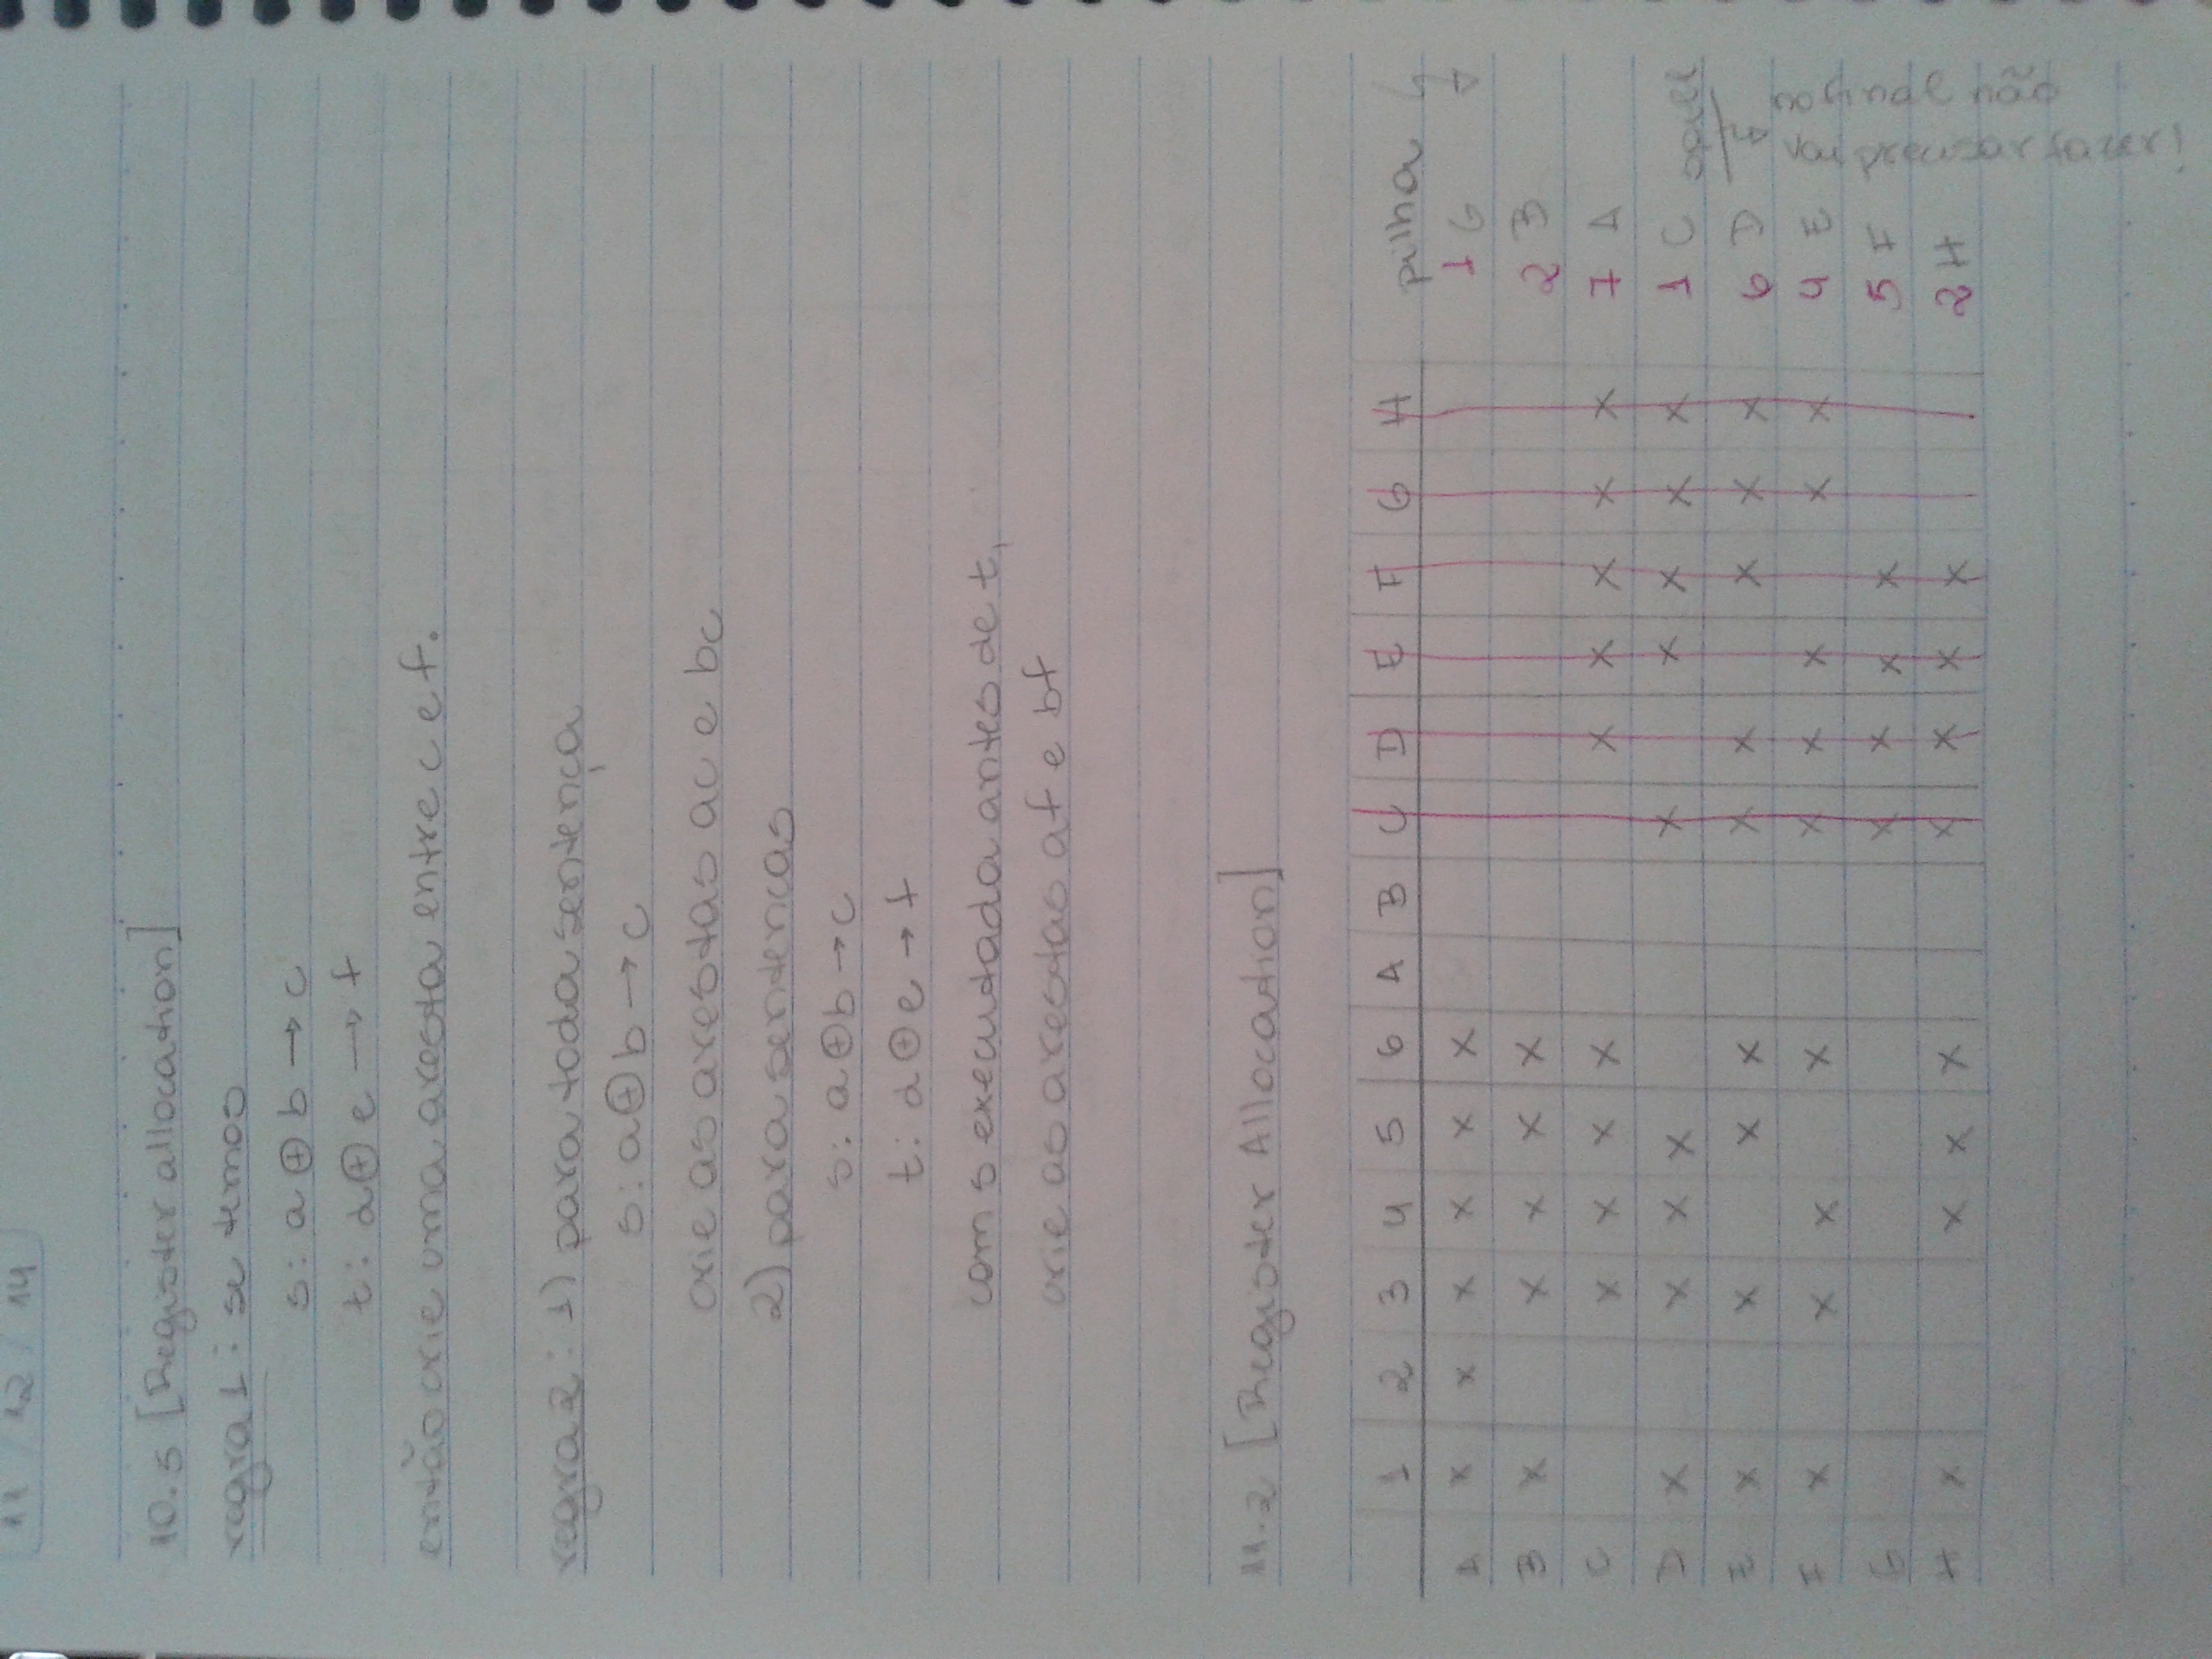 11 / 12 / 14
10.5 [Register allocation]
regra 1: se temos
s: a ⊕ b → c
t: d ⊕ e → f
então crie uma aresta entre c e f.
regra 2: 1) para toda sentença
s: a ⊕ b → c
crie as arestas ac e bc
2) para sentencas
s: a ⊕ b → c
t: d ⊕ e → f
com s executada antes de t,
crie as arestas af e bf
11.2 [Register Allocation]
1 2 3 4 5 6 A B C D E F G H pilha
A x x x x x x 1 G
B x x x x x 2 B
C x x x x x x x x x 7 A
D x x x x x x x x x 1 C
E x x x x x x x x x 6 D
F x x x x x x x x x 4 E
G x x x x 5 F
H x x x x x x x x 2 H
spill
no final não
vai precisar fazer!